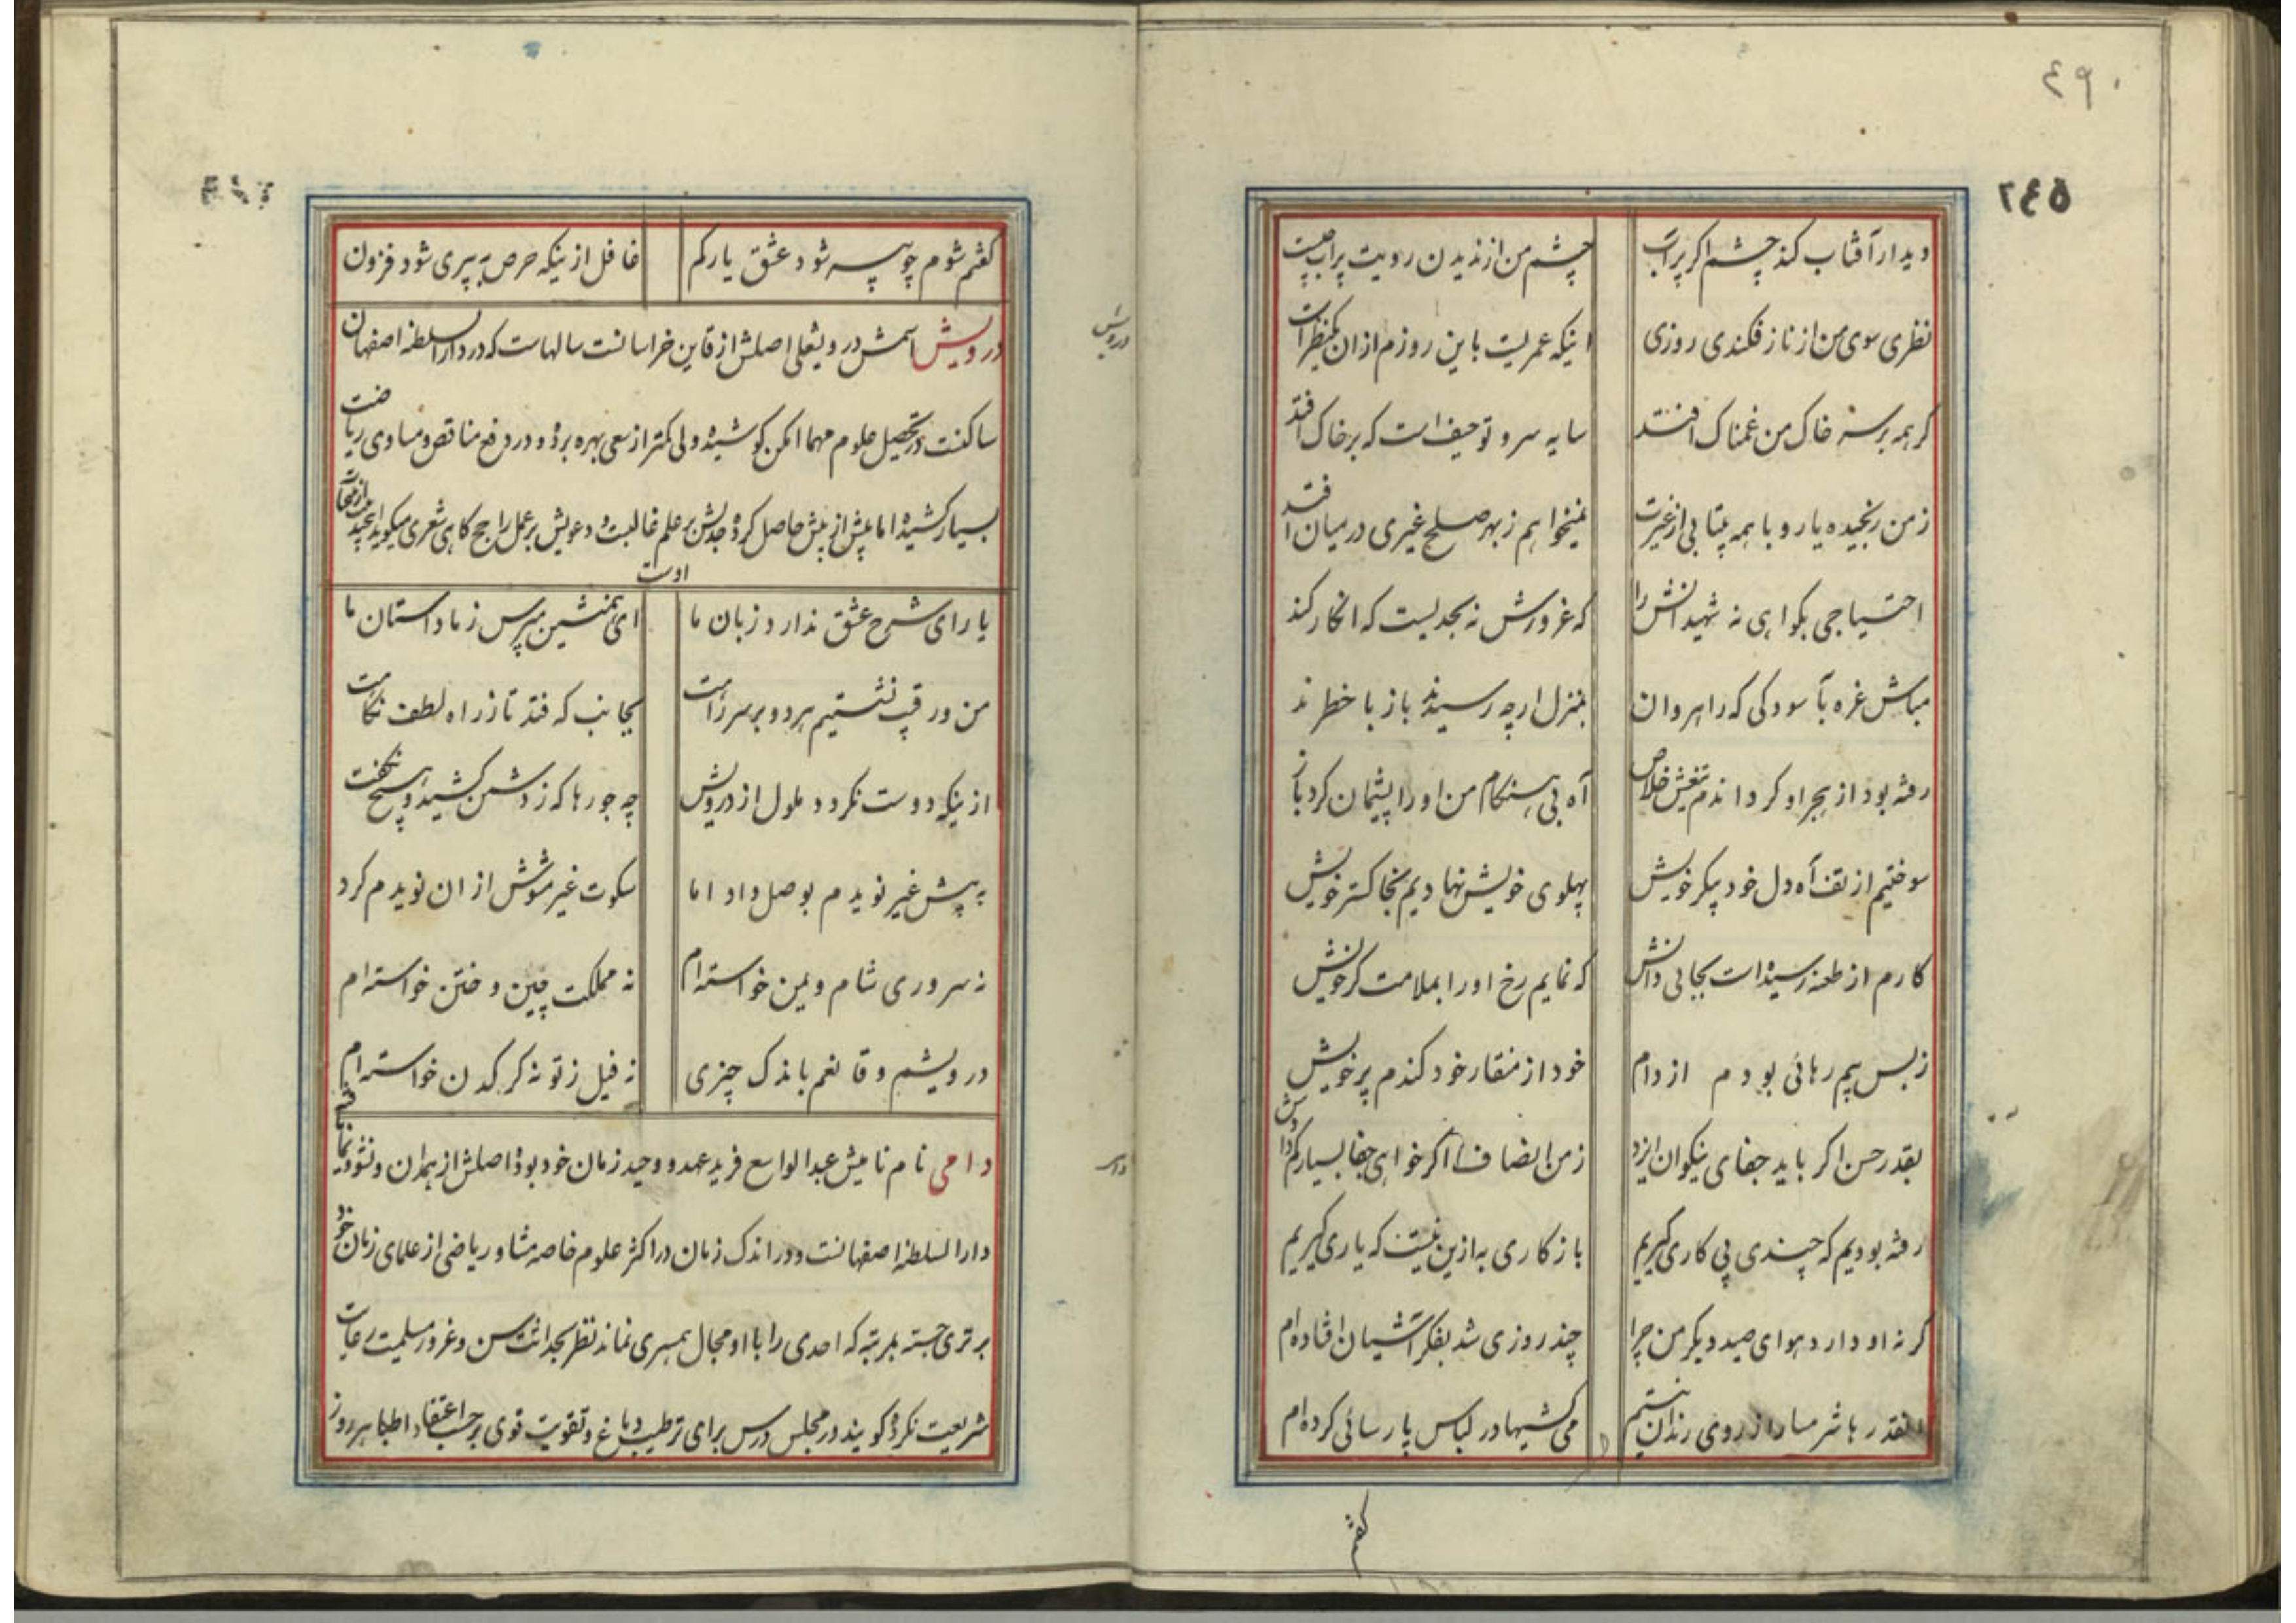 ٤٩٠
٢٤٥
دیدار آفتاب کند چشم اکر پرآب چشم من از ندیدن رویت پرآب چیست
نظری سوی من از ناز فکندی روزی اینکه عمریست باین روزم از ان یکنظر است
کر همه بر سر خاک من غمناک افتد سایه سرو تو حیف است که بر خاک افتد
ز من رنجیده یار و با همه بیتابی از غیرت نمیخواهم ز بهر صلح غیری در میان افتد
احتیاجی بکواهی نه شهیدانش را که غرورش نه بحدیست که انکار کند
مباش غره بآسودکی که راهروان بمنزل ارچه رسیدند باز با خطرند
رفته بود از هجر او کرداندم تیغش خلاص آه بی هنکام من او را پشیمان کرد باز
سوختیم از تف آه دل خود پیکر خویش پهلوی خویش نهادیم بخاکستر خویش
کارم از طعنه رسیدات بجائی دانش که نمایم رخ او را بملامت کر خویش
ز بس بیم رهائی بودم از دام خود از منقار خود کندم پر خویش
بقدر حسن اکر باید جفای نیکوان ایزد ز من انصاف اکر خواهی جفا بسیار کم دادش
رفته بودیم که چندی پی کاری کیریم باز کاری به ازین نیست که یاری کیریم
کر نه او دارد هوای صید دیکر من چرا چند روزی شد بفکر آشیان افتاده ام
انقدرها شرمسار از روی رندان نیستم می کشیها در لباس پارسائی کرده ام
کفتم
کفتم شوم چو پیر شود عشق یار کم غافل ازینکه حرص به پیری شود فزون
درویش
درویش اسمش درویشعلی اصلش از قاین خراسانست سالهاست که در دار السلطنه اصفهان
ساکنست در تحصیل علوم مهما امکن کوشیده ولی کمتر از سعی بهره برده و در دفع مناقص و مساوی ریاضت
بسیار کشیده اما بیش از پیش حاصل کرده جدلش بر علم غالبست و دعویش بر عمل راجح کاهی شعری میکوید این چند از منتخبات
اوست
یارای شرح عشق ندارد زبان ما ای همنشین مپرس ز ما داستان ما
من و رقیب نشستیم هر دو بر سر راهت بجانب که فتد تا ز راه لطف نکاهت
ازینکه دوست نکردد ملول از درویش چه جورها که ز دشمن کشید و هیچ نکفت
به پیش غیر نویدم بوصل داد اما سکوت غیر مشوش از ان نویدم کرد
نه سروری شام و یمن خواسته ام نه مملکت چین و ختن خواسته ام
درویشم و قانعم باندک چیزی نه فیل ز تو نه کرکدن خواسته ام
دامی
دامی نام نامیش عبدالواسع فرید عهد و وحید زمان خود بوده اصلش از همدان و نشو و نمایش در
دار السلطنه اصفهانست و در اندک زمان در اکثر علوم خاصه مشا و ریاضی از علمای زمان خود
برتری جسته بمرتبه که احدی را با او مجال همسری نماند نظر بحداثت سن و غرور مسلمیت رعایت
شریعت نکرده کویند در مجلس درس برای ترطیب دماغ و تقویت قوی بر حسب اعتقاد اطبا هر روز